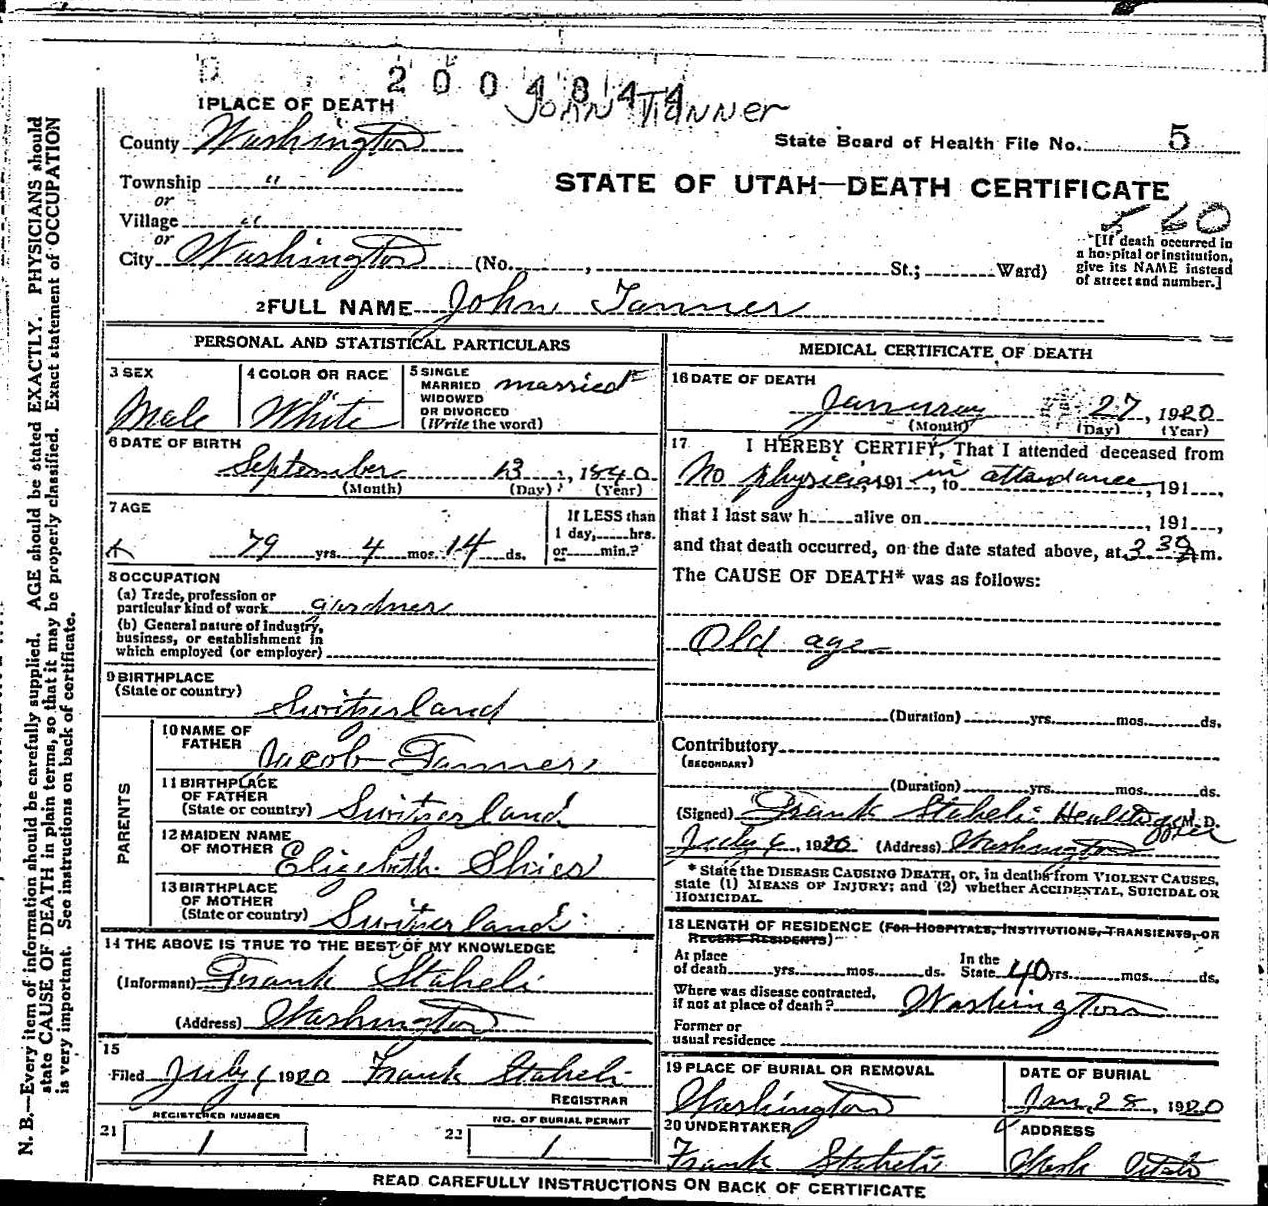 2004844
John Tanner
1 PLACE OF DEATH
County Washington
State Board of Health File No. 5
Township "
or
STATE OF UTAH—DEATH CERTIFICATE
Village "
or
560
City Washington (No. , St.; Ward)
*[If death occurred in
a hospital or institution,
give its NAME instead
of street and number.]
2 FULL NAME John Tanner
PERSONAL AND STATISTICAL PARTICULARS
3 SEX
Male
4 COLOR OR RACE
White
5 SINGLE
MARRIED married
WIDOWED
OR DIVORCED
(Write the word)
6 DATE OF BIRTH
September 13, 1840
(Month) (Day) (Year)
7 AGE
79 yrs. 4 mos. 14 ds.
If LESS than
1 day, hrs.
or min.?
8 OCCUPATION
(a) Trade, profession or
particular kind of work gardner
(b) General nature of industry,
business, or establishment in
which employed (or employer)
9 BIRTHPLACE
(State or country)
Switzerland
PARENTS
10 NAME OF
FATHER Jacob Tanner
11 BIRTHPLACE
OF FATHER
(State or country) Switzerland
12 MAIDEN NAME
OF MOTHER Elizebeth
13 BIRTHPLACE
OF MOTHER
(State or country) Switzerland
14 THE ABOVE IS TRUE TO THE BEST OF MY KNOWLEDGE
(Informant) Frank Staheli
(Address) Washington
15
Filed July 6, 1920 Frank Staheli
REGISTRAR
REGISTERED NUMBER
21 1
NO. OF BURIAL PERMIT
22 1
MEDICAL CERTIFICATE OF DEATH
16 DATE OF DEATH
Januray 27, 1920
(Month) (Day) (Year)
17 I HEREBY CERTIFY, That I attended deceased from
No physician, 191 , to in attandance, 191 ,
that I last saw h alive on , 191 ,
and that death occurred, on the date stated above, at 3.30 A m.
The CAUSE OF DEATH* was as follows:
Old age
(Duration) yrs. mos. ds.
Contributory
(SECONDARY)
(Duration) yrs. mos. ds.
(Signed) Frank Staheli Health officer M.D.
July 6, 1920 (Address) Washington
* State the DISEASE CAUSING DEATH, or, in deaths from VIOLENT CAUSES,
state (1) MEANS OF INJURY; and (2) whether ACCIDENTAL, SUICIDAL OR
HOMICIDAL.
18 LENGTH OF RESIDENCE (FOR HOSPITALS, INSTITUTIONS, TRANSIENTS, OR
RECENT RESIDENTS)
At place
of death yrs. mos. ds.
In the
State 40 yrs. mos. ds.
Where was disease contracted,
if not at place of death? Washington
Former or
usual residence
19 PLACE OF BURIAL OR REMOVAL
Washington
DATE OF BURIAL
Jan, 28, 1920
20 UNDERTAKER
Frank Staheli
ADDRESS
Wash Utah
READ CAREFULLY INSTRUCTIONS ON BACK OF CERTIFICATE
N. B.—Every item of information should be carefully supplied. AGE should be stated EXACTLY. PHYSICIANS should
state CAUSE OF DEATH in plain terms, so that it may be properly classified. Exact statement of OCCUPATION
is very important. See instructions on back of certificate.